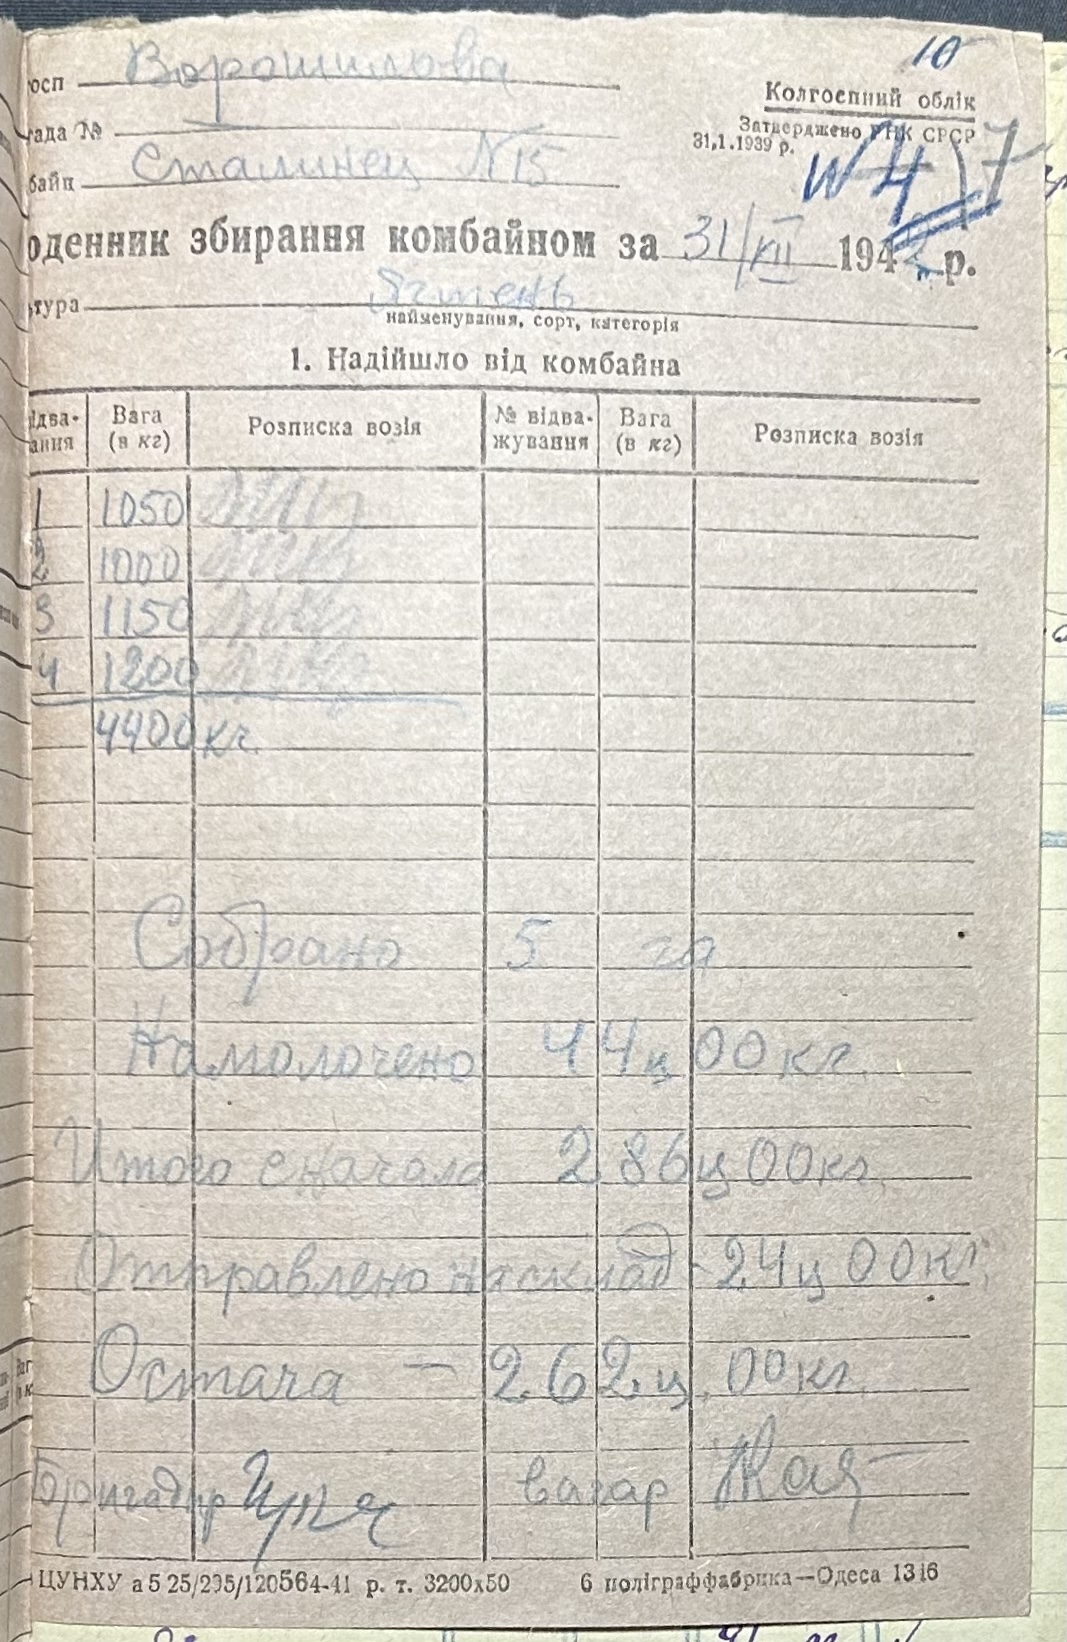 10
осп Ворошилова
Колгоспний облік
ада №
Затверджено РНК СРСР
31.1.1939 р.
байн Сталинец N15
N 4 7
оденник збирання комбайном за 31/VII 194 р.
тура Ячмень
найменування, сорт, категорія
1. Надійшло від комбайна
ідва-
ання
Вага
(в кг)
Розписка возія
№ відва-
жування
Вага
(в кг)
Розписка возія
1 1050
2 1000
3 1150
4 1200
4400 кг.
Собрано 5 га
Намолочено 44ц 00 кг.
Итого сначала 286ц 00кг.
Отправлено на склад - 24ц 00кг.
Остача — 262ц. 00кг.
Бригадир вагар
ЦУНХУ а 5 25/295/120564-41 р. т. 3200х50 6 поліграффабрика—Одеса 1346